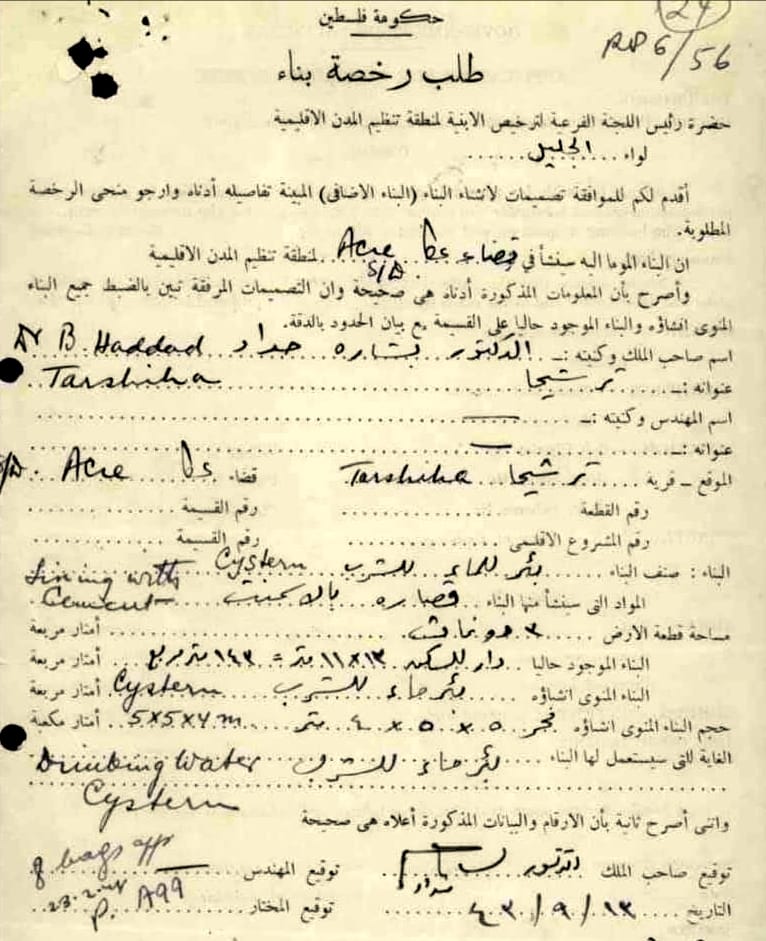 24
حكومة فلسطين
RP 6/56
طلب رخصة بناء
حضرة رئيس اللجنة الفرعية لترخيص الابنية لمنطقة تنظيم المدن الاقليمية
لواء ..... الجليل .......
أقدم لكم للموافقة تصميمات لانشاء البناء (البناء الاضافى) المبينة تفاصيله أدناه وارجو منحى الرخصة
المطلوبة.
ان البناء الموما اليه سينشأ في قضاء عكا Acre S/D لمنطقة تنظيم المدن الاقليمية
وأصرح بأن المعلومات المذكورة أدناه هى صحيحة وان التصميمات المرفقة تبين بالضبط جميع البناء
المنوى انشاؤه والبناء الموجود حاليا على القسيمة مع بيان الحدود بالدقة.
اسم صاحب الملك وكنيته :ـ الدكتور بشاره حداد Dr B. Haddad
عنوانه :ـ ترشيحا Tarshiha
اسم المهندس وكنيته :ـ
عنوانه :ـ
الموقع ـ قرية ترشيحا Tarshiha قضاء عكا Acre
رقم القطعة رقم القسيمة
رقم المشروع الاقليمى رقم القسيمة
البناء : صنف البناء بئر للماء للشرب Cystern
المواد التى سينشأ منها البناء قصاره بالاسمنت Lining with Cement
مساحة قطعة الارض ٣ دونمات أمتار مربعة
البناء الموجود حاليا دار للسكن ١٣×١١ متر = ١٤٣ متر مربع أمتار مربعة
البناء المنوى انشاؤه بئر ماء للشرب Cystern أمتار مربعة
حجم البناء المنوى انشاؤه ٥ × ٥ × ٤ متر 5x5x4 m أمتار مكعبة
الغاية التى سيستعمل لها البناء بئر ماء للشرب Drinking Water
Cystern
وانى أصرح ثانية بأن الارقام والبيانات المذكورة أعلاه هى صحيحة
توقيع صاحب الملك الدكتور توقيع المهندس
8 bags
التاريخ ١٣/٩/٤٣ توقيع المختار
P. A99